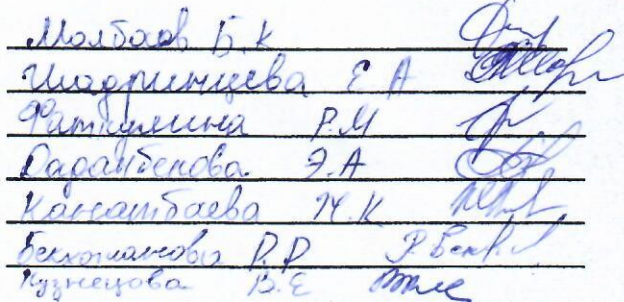 Молбаов Б.К
Шадринцева Е А
Фаткулина Р.М
Саданбекова Э.А
Канатбаева Ж.К
Бекжанова Р.Р
Кузнецова В.Е